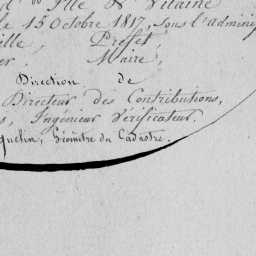 d'Ille & Vilaine
le 15 Octobre 1817, sous l'admini
ille, Préfet,
er, Maire,
Direction de
Directeur des Contributions,
s, Ingénieur Vérificateur.
quelin, Géomètre du Cadastre.